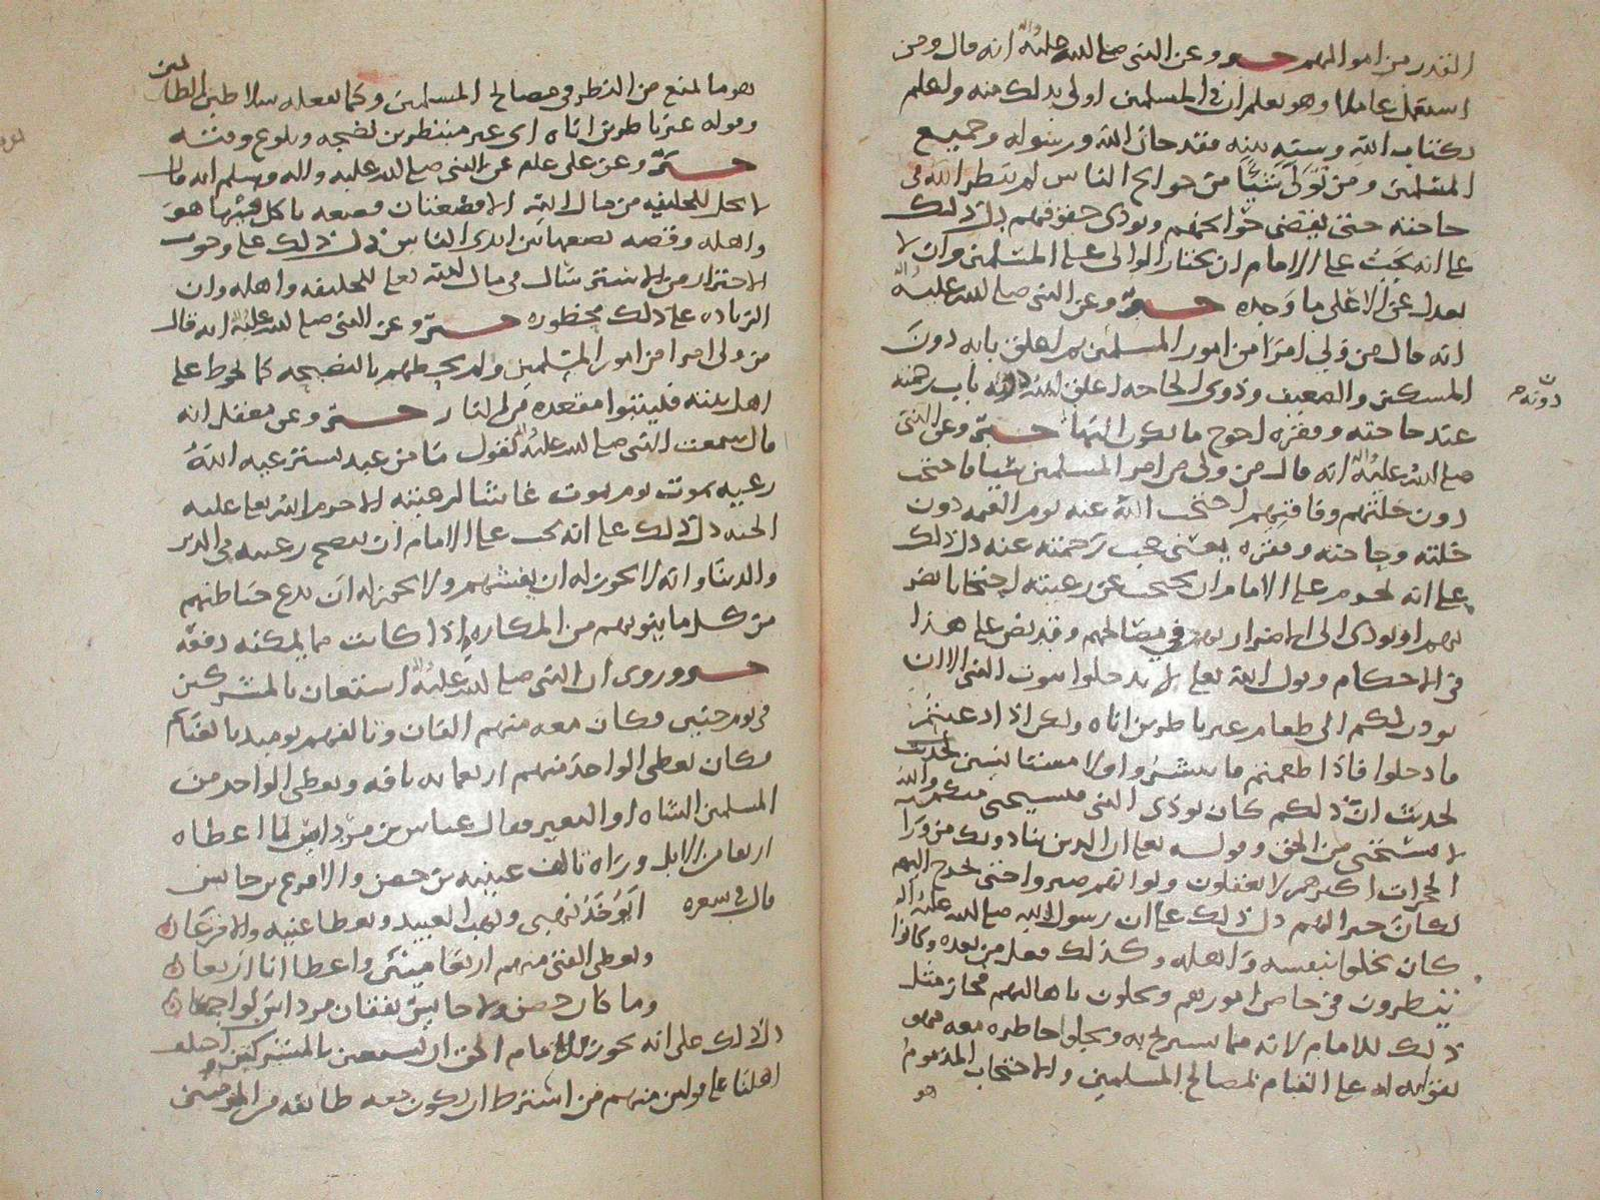 القدر من اموالهم خبر وعن النبي صلى الله عليه واله انه قال ومن
استعمل عاملا وهو يعلم ان في المسلمين اولى بذلك منه واعلم
بكتاب الله وسنة نبيه فقد خان الله ورسوله وجميع
المسلمين ومن تولى شيئا من حوايج الناس لم ينظر الله في
حاجته حتى يقضي حوايجهم ويودي حقوقهم دل ذلك
على انه يجب على الامام ان يختار الوالي على المسلمين وان لا
يعدل عن الاعلى ما وجده خبر وعن النبي صلى الله عليه واله
انه قال من ولي امرا من امور المسلمين ثم اغلق بابه دون
المسكين والضعيف وذوي الحاجه اغلق الله دونه باب رحمته
دونه م
عند حاجته وفقره احوج ما يكون اليها خبر وعن النبي
صلى الله عليه واله انه قال من ولي من امر المسلمين شيا فاحتجب
دون خلتهم وفاقتهم احتجب الله عنه يوم القيمه دون
خلته وحاجته وفقره يعني حجب رحمته عنه دل ذلك
على انه يحرم على الامام ان يحتجب عن رعيته احتجابا يضر
بهم او يودي الى اضرار بهم في مصالحهم وقد نص على هذا
في الاحكام وقول الله تعالى لا تدخلوا بيوت النبي الا ان
يوذن لكم الى طعام غير ناظرين اناه ولكن اذا دعيتم
فادخلوا فاذا طعمتم فانتشروا ولا مستانسين لحديث
لحديث ان ذلكم كان يوذي النبي فيستحيي منكم والله
لا يستحيي من الحق وقوله تعالى ان الذين ينادونك من ورا
الحجرات اكثرهم لا يعقلون ولو انهم صبروا حتى تخرج اليهم
لكان خيرا لهم دل ذلك على ان رسول الله صلى الله عليه واله
كان يخلوا بنفسه واهله وكذلك فعل من بعده وكانوا
ينظرون في خاص امورهم ويخلون باهاليهم فجاز مثل
ذلك للامام لانه مما يستريح به ويجلوا خاطره معه فهو
تقويه له على القيام لمصالح المسلمين والاحتجاب المذموم
هو
هو ما يمنع من النظر في مصالح المسلمين وكما يفعله سلاطين الظالمين
وقوله غير ناظرين اناه اي غير منتظرين نضجه وبلوغ وقته
خبر وعن علي علم عن النبي صلى الله عليه واله وسلم انه قال
لا يحل للخليفه من مال الله الا قصعتان قصعه ياكل فيها هو
واهله وقصعه يضعها بين ايدي الناس دل ذلك على وجوب
الاحتراز من الاسترسال في مال الله تعالى للخليفه واهله وان
الزياده على ذلك محظوره خبر وعن النبي صلى الله عليه واله انه قال
من ولي امرا من امور المسلمين ولم يحطهم بالنصيحه كما يحوط على
اهل بيته فليتبوا مقعده من النار خبر وعن معقل انه
قال سمعت النبي صلى الله عليه واله يقول ما من عبد يسترعيه الله
رعيه يموت يوم يموت غاشا لرعيته الا حرم الله تعالى عليه
الجنه دل ذلك على انه يجب على الامام ان ينصح رعيته في الدين
والدنيا وانه لا يجوز له ان يغشهم ولا يجوز له ان يدع حياطتهم
من كل ما ينوبهم من المكاره اذا كانت مما يمكنه دفعه
خبر وروي ان النبي صلى الله عليه واله استعان بالمشركين
في يوم حنين وكان معه منهم الفان وتالفهم يوميذ بالغنايم
فكان يعطي الواحد منهم اربعمايه ناقه ويعطي الواحد من
المسلمين الشاه او البعير فقال عباس بن مرداس لما اعطاه
اربعا من الابل وراه تالف عيينه بن حصن والاقرع بن حابس
قال في شعره ايوخذ نهبي ونهب العبيد ويعطا عيينه والاقرعان
ويعطى الفتى منهم اربعا ميين واعطا انا اربعان
وما كان حصن ولا حابس يفقان مرداس لو اجمعان
دل ذلك على انه يجوز للامام المحق ان يستعين بالمشركين واختلف
اهلنا على قولين منهم من اشترط ان يكون معه طائفه من المومنين